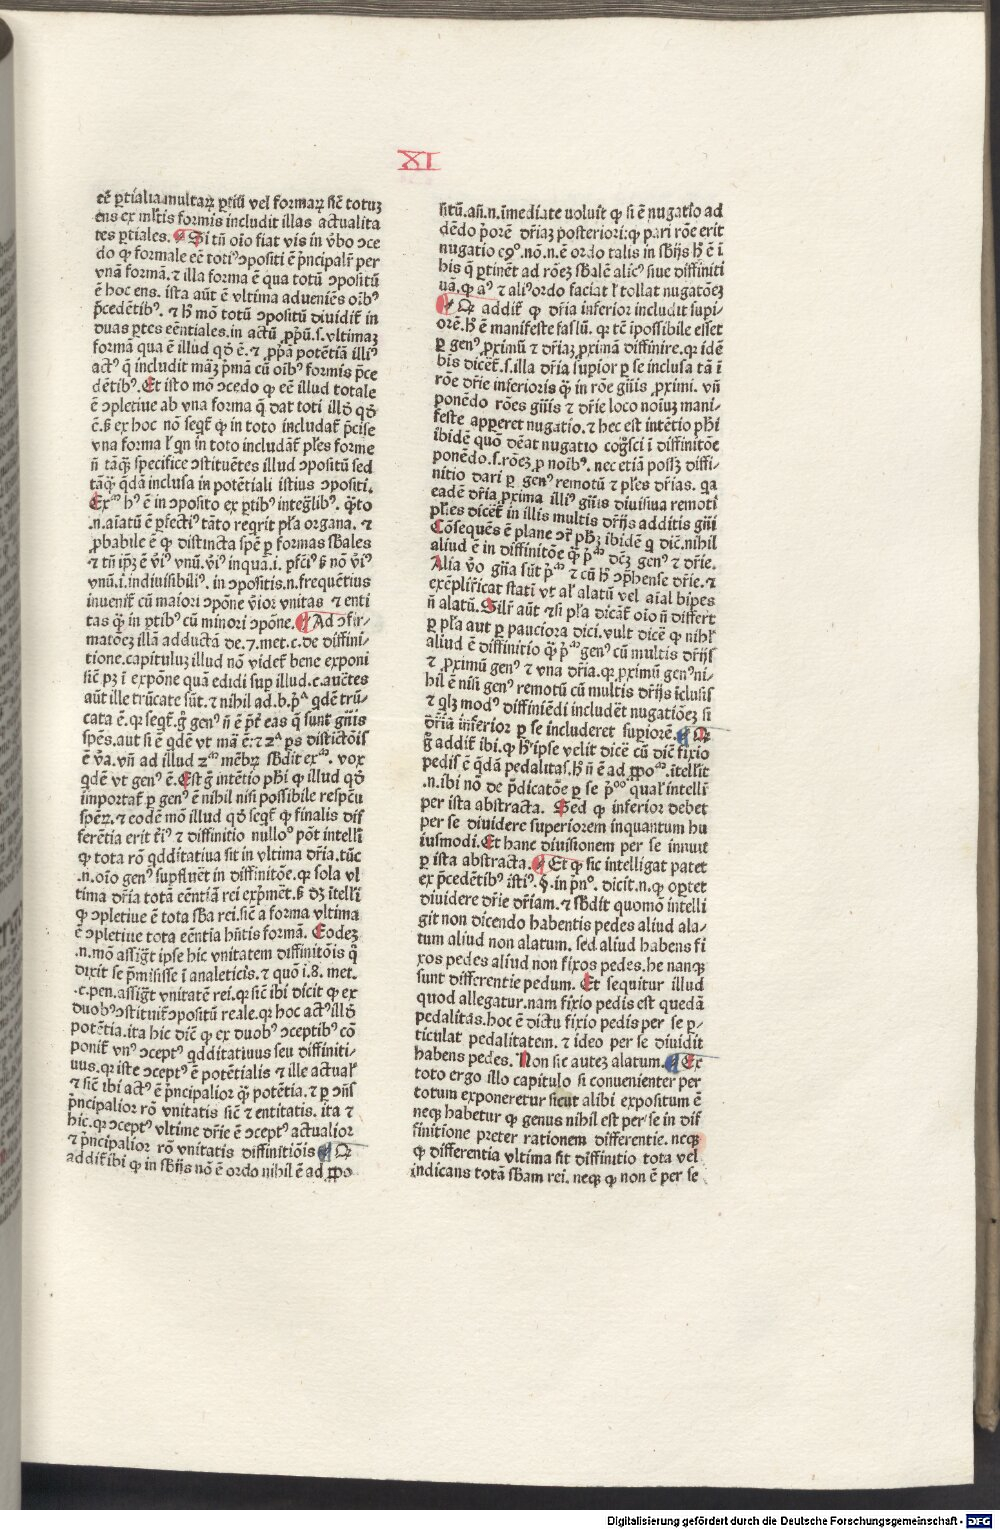 XI
eē ꝑtialia multaꝝ ꝑtiū vel formaꝝ sic̄ totuꝫ
ens ex mltis formis includit illas actualita
tes ꝑtiales. ¶ Si tn̄ oīo fiat vis in v̓bo ↄce
do ꝙ formale eē totiꝰ ↄpositi ē pͥncipalr̄ per
vnā formā. ⁊ illa forma ē qua totū ↄpositū
ē hoc ens. ista aūt ē vltima adueniēs oīb᷒
p̄cedētib᷒. ⁊ hͦ mō totū ↄpositū diuidit̄ in
duas ꝑtes eēntiales. in actū ꝓpͥū .s. vltimaꝫ
formā qua ē illud qd̓ ē. ⁊ ꝓpͥā potētiā illiꝰ
actꝰ q̄ includit māꝫ pͥmā cū oīb᷒ formis p̄ce
dētib᷒. Et isto mō ↄcedo ꝙ eē illud totale
ē ↄpletiue ab vna forma q̄ dat toti illd̓ qd̓
ē. sꝫ ex hoc nō seqͥt̄ ꝙ in toto includat̄ p̄cise
vna forma ł qn̄ in toto includāt̄ pl̄es forme
n̄ tāqͣꝫ specifice ↄstituētes illud ↄpositū sed
tāqͣꝫ qͥdā inclusa in potētiali istius ↄpositi.
Exᵐ hꝰ ē in ↄposito ex ꝑtib᷒ integͣlib᷒. qͣto
.n. aīatū ē ꝑfectiꝰ tāto reqͥrit pl̄a organa. ⁊
ꝓbabile ē ꝙ distincta spē ꝑ formas sb̄ales
⁊ tn̄ ip̄ꝫ ē v̓iꝰ vnū. v̓iꝰ inquā .i. ꝑfcīꝰ sꝫ nō v̓iꝰ
vnū .i. indiuisibiliꝰ. in ↄpositis .n. frequētius
inuenit̄ cū maiori ↄpōne v̓ior vnitas ⁊ enti
tas qͣꝫ in ꝑtib᷒ cū minori ↄpōne. ¶ Ad ↄfir-
matōeꝫ illā adductā de .7. met. c. de diffini-
tione. capituluꝫ illud nō videt̄ bene exponi
sic̄ pꝫ ī expōne quā edidi suꝑ illud. c. auētes
aūt ille trūcate sūt. ⁊ nihil ad .b. pͣᵃ qͥdē trū-
cata ē. qꝛ seqͥt̄. gͦ genꝰ n̄ ē p̄t̄ eas q̄ sunt gn̄is
spēs. aut si ē qͥdē vt mā ē: ⁊ 2ᵃ ꝑs distictōis
ē v̓a. vn̄ ad illud 2ᵐ mēbꝝ sb̄dit exᵐ. vox
qͥdē vt genꝰ ē. Est gͦ intētio ph̄i ꝙ illud qd̓
importat̄ ꝑ genꝰ ē nihil nisi possibile respcū
spēꝝ. ⁊ eodē mō illud qd̓ seqͥt̄ ꝙ finalis dif
ferētia erit t̄iꝰ ⁊ diffinitio nulloº pōt intelli
ꝙ tota rō qͥdditatiua sit in vltima dr̄ia. tūc
.n. oīo genꝰ supflueret in diffinitōe. qꝛ sola vl
tima dr̄ia totā eēntiā rei exp̄met. sꝫ dꝫ ītelli
ꝙ ↄpletiue ē tota sb̄a rei. sic̄ a forma vltima
ē ↄpletiue tota eēntia hn̄tis formā. Eodeꝫ
.n. mō assigt̄ ipse hic vnitatem diffinitōis q̄
dixit se p̄misisse ī analeticis. ⁊ quō i. 8. met.
.c. pen. assigt̄ vnitatē rei. qꝛ sic̄ ibi dicit ꝙ ex
duob᷒ ↄstituit̄ ↄpositū reale. qꝛ hoc actꝰ illd̓
potētia. ita hic dic̄ ꝙ ex duob᷒ ↄceptib᷒ cō
ponit̄ vnꝰ ↄceptꝰ qͥdditatiuus seu diffiniti-
uus. qꝛ iste ↄceptꝰ ē potētialis ⁊ ille actual̓
⁊ sic̄ ibi actꝰ ē pͥncipalior qͣꝫ potētia. ⁊ ꝑ ↄn̄s
pͥncipalior rō vnitatis sic̄ ⁊ entitatis. ita ⁊
hic. qꝛ ↄceptꝰ vltime dr̄ie ē ↄceptꝰ actualior
⁊ pͥncipalior rō vnitatis diffinitiōis ¶ Q
addit̄ ibi ꝙ in sb̄ijs nō ē ordo nihil ē ad ꝓpo
sitū. an̄ .n. īmediate voluit ꝙ si ē nugatio ad
dēdo pͥorē dr̄iaꝫ posteriori: ꝙ pari rōe erit
nugatio ecꝰº. nō .n. ē ordo talis in sb̄ijs hͦ ē ī
his q̄ ꝑtinēt ad rōeꝫ sb̄alē alicꝰ siue diffiniti
uā. ꝙ aꝰ ⁊ aliꝰ ordo faciat ł tollat nugatōeꝫ
¶ Q addit̄ ꝙ dr̄ia inferior includit supi-
orē. hͦ ē manifeste falsū. qꝛ tc̄ īpossibile esset
ꝑ genꝰ ꝓximū ⁊ dr̄iaꝫ ꝓximā diffinire. qꝛ idē
bis dicēt̄ .s. illa dr̄ia supior ꝑ se inclusa tā ī
rōe dr̄ie inferioris qͣꝫ in rōe gn̄is ꝓximi. vn̄
ponēdo rōes gn̄is ⁊ dr̄ie loco noīuꝫ mani-
feste apperet nugatio. ⁊ hec est intētio ph̄i
ibidē quō deat nugatio cog͂sci ī diffinitōe
ponēdo .s. rōeꝫ ꝓ noīb᷒. nec etiā possꝫ diffi-
nitio dari ꝑ genꝰ remotū ⁊ pl̄es dr̄ias. qa
eadē dr̄ia ꝓxima illiꝰ gn̄is diuisiua remoti
pl̄ies dicēt̄ in illis multis dr̄ijs additis gn̄i
Cōsequēs ē plane ↄꝰ ph̄ꝫ ibidē qͥ dic̄. nihil
aliud ē in diffinitōe qͣꝫ pͥᵐ dc̄ꝫ genꝰ ⁊ dr̄ie.
Alia v̓o gn̄a sūt pͥᵐ ⁊ cū hͦ ↄp̄hense dr̄ie. ⁊
exēplificat statī vt aīal alatū vel aial bipes
n̄ alatū. Silr̄ aūt ⁊ si pl̄a dicāt̄ oīo n̄ differt
ꝑ pl̄a aut ꝑ pauciora dici. vult dicē ꝙ nihl̓
aliud ē diffinitio qͣꝫ pͥᵐ genꝰ cū multis dr̄ijs
⁊ ꝓximū genꝰ ⁊ vna dr̄ia. qꝛ ꝓximū genꝰ ni-
hil ē nisi genꝰ remotū cū multis dr̄ijs īclusis
⁊ qͥlꝫ modꝰ diffiniēdi includēt nugatiōeꝫ si
dr̄iā inferior ꝑ se includeret supiorē. ¶ Q
gͦ addit̄ ibi. ꝙ hͦ ipse velit dicē cū dic̄ fixio
pedis ē qͥdā pedalitas. hͦ n̄ ē ad ꝓpoᵐ. ītelligit
.n. ibi nō de p̄dicatōe ꝑ se pͥºº qualr̄ intelli
per ista abstracta. Sed ꝙ inferior debet
per se diuidere superiorem inquantum hu
iusmodi. Et hanc diuisionem per se innuit
ꝑ ista abstracta. ¶ Et ꝙ sic intelligat patet
ex p̄cedētib᷒ istiꝰ. §. in pͥnº. dicit .n. ꝙ oꝑtet
diuidere dr̄ie dr̄iam. ⁊ sb̄dit quomō intelli
git non dicendo habentis pedes aliud ala-
tum aliud non alatum. sed aliud habens fi
xos pedes aliud non fixos pedes. he nanqꝫ
sunt differentie pedum. Et sequitur illud
quod allegatur. nam fixio pedis est quedā
pedalitas. hoc ē dictu fixio pedis per se p-
ticulat pedalitatem. ⁊ ideo per se diuidit
habens pedes. Non sic auteꝫ alatum. ¶ Ex
toto ergo illo capitulo si conuenienter per
totum exponeretur sicut alibi expositum ē
neqꝫ habetur ꝙ genus nihil est per se in dif
finitione preter rationem differentie. neqꝫ
ꝙ differentia vltima sit diffinitio tota vel
indicans totā sb̄am rei. neqꝫ ꝙ non ē per se
Digitalisierung gefördert durch die Deutsche Forschungsgemeinschaft - DFG